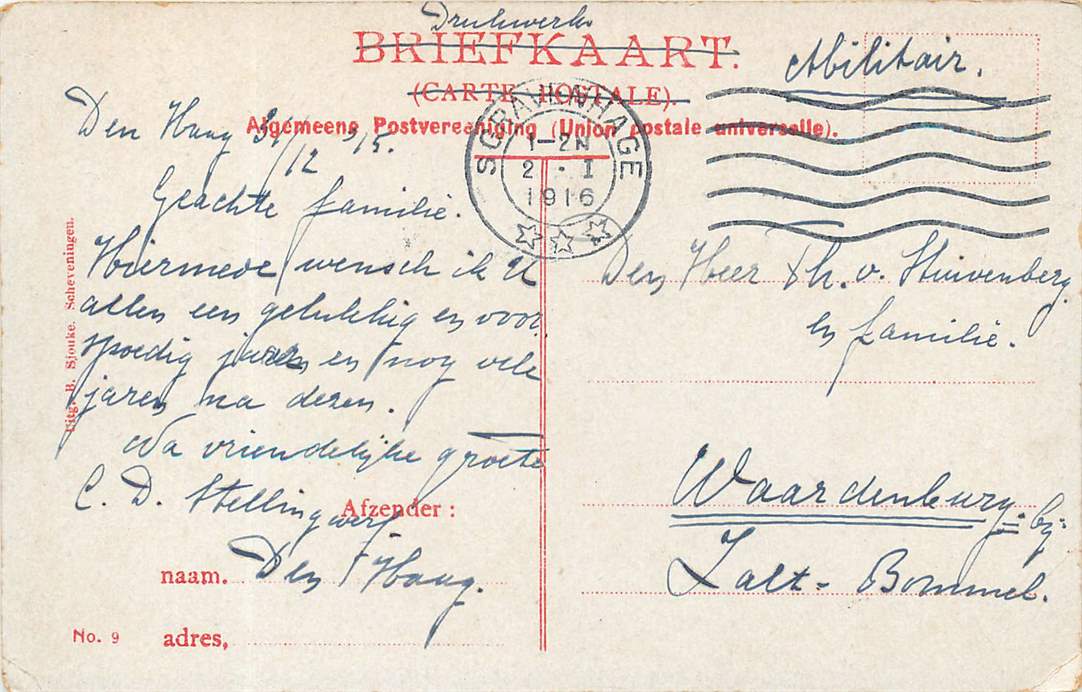 Drukwerk
BRIEFKAART.
(CARTE POSTALE).
Algemeene Postvereeniging (Union postale universelle).
Militair.
S GRAVENHAGE
1-2N
2 . I
1916
Den Haag 31/12 '15.
Geachte familie.
Hiermede wensch ik U
allen een gelukkig en voor
spoedig jaar en nog vele
jaren na dezen.
Na vriendelijke groete
C. D. Stellingwerf
Den Haag.
Afzender:
naam.
adres,
No. 9
Uitg. B. Sjouke. Scheveningen.
Den Heer Th. v. Stuivenberg
en familie.
Waardenburg. bij
Zalt-Bommel.